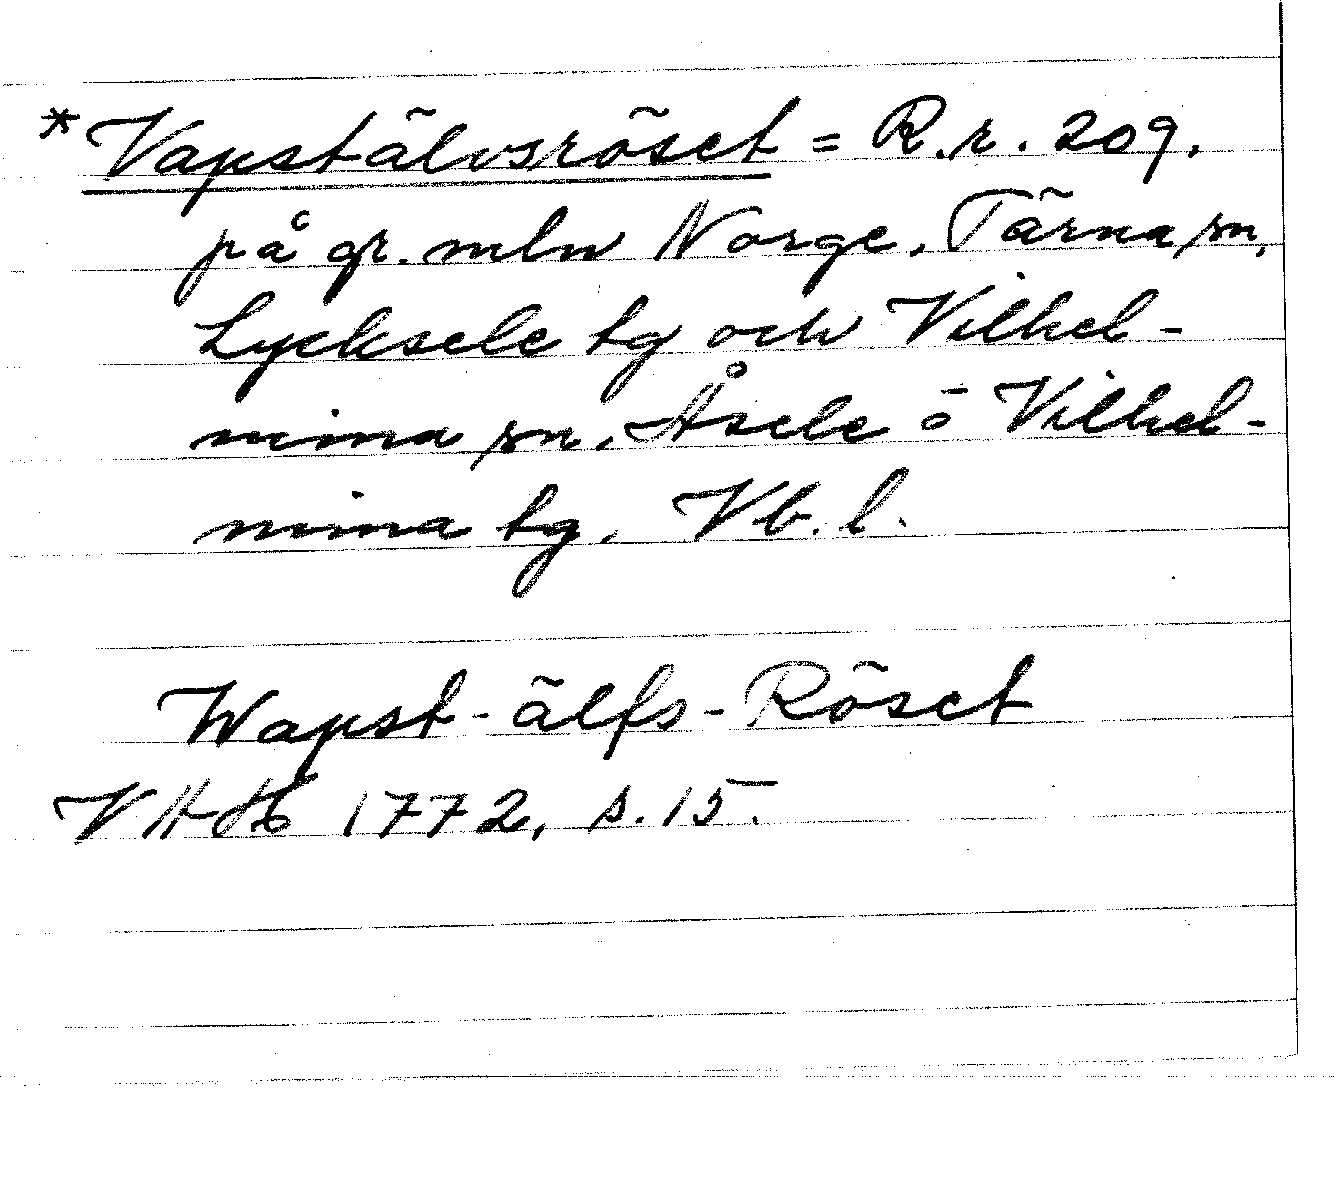 *Vapstälvsröset = R.r. 209.
på gr. mln Norge, Tärna sn,
Lycksele tg och Vilhel-
mina sn, Åsele o Vilhel-
mina tg, Vb. l.
Wapst-älfs-Röset
VHAH 1772, s. 15.